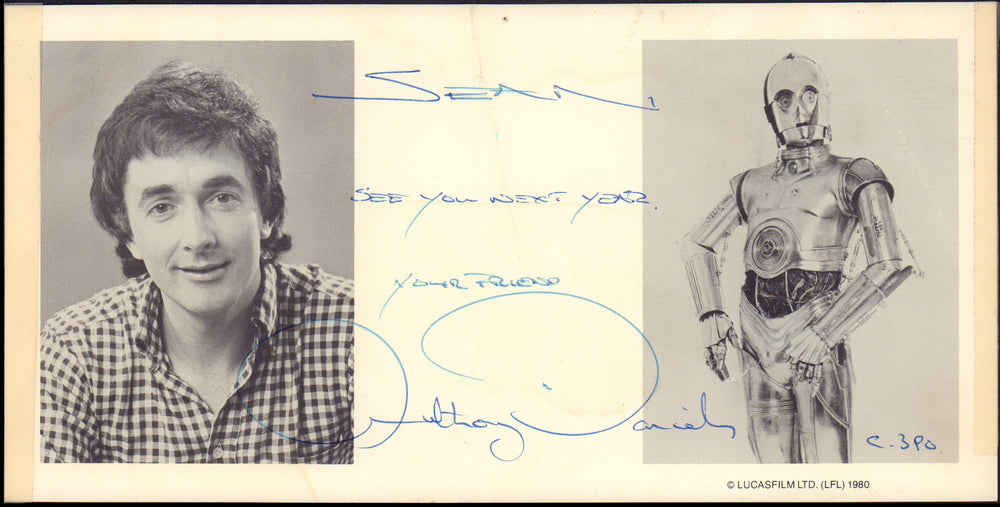 SEAN,
SEE YOU NEXT YEAR.
YOUR FRIEND
Anthony Daniels
C. 3PO.
© LUCASFILM LTD. (LFL) 1980